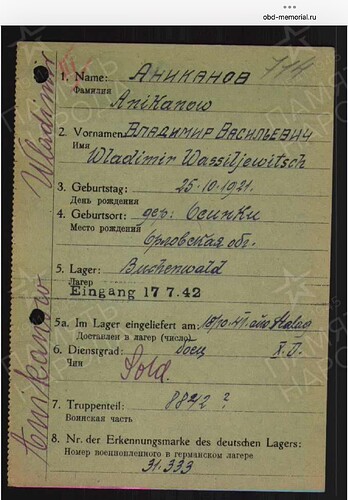 obd-memorial.ru
Wladimir
Anikanow
774
1. Name: АНИКАНОВ
Фамилия
Anikanow
2. Vornamen: ВЛАДИМИР ВАСИЛЬЕВИЧ
Имя
Wladimir Wassiljewitsch
3. Geburtstag: 25.10.1921.
День рождения
4. Geburtsort: дер: Осинки
Место рождения
Орловская обл.
5. Lager: Buchenwald
Лагерь
Eingang 17 7.42
5a. Im Lager eingeliefert am: 18/10.41. aus Stalag
Доставлен в лагерь (число)
X.D.
6. Dienstgrad: боец
Чин
Sold.
7. Truppenteil: 8842 ?
Воинская часть
8. Nr. der Erkennungsmarke des deutschen Lagers:
Номер военнопленного в германском лагере
31.333
ПАМЯТЬ
ПАРОЛЬ